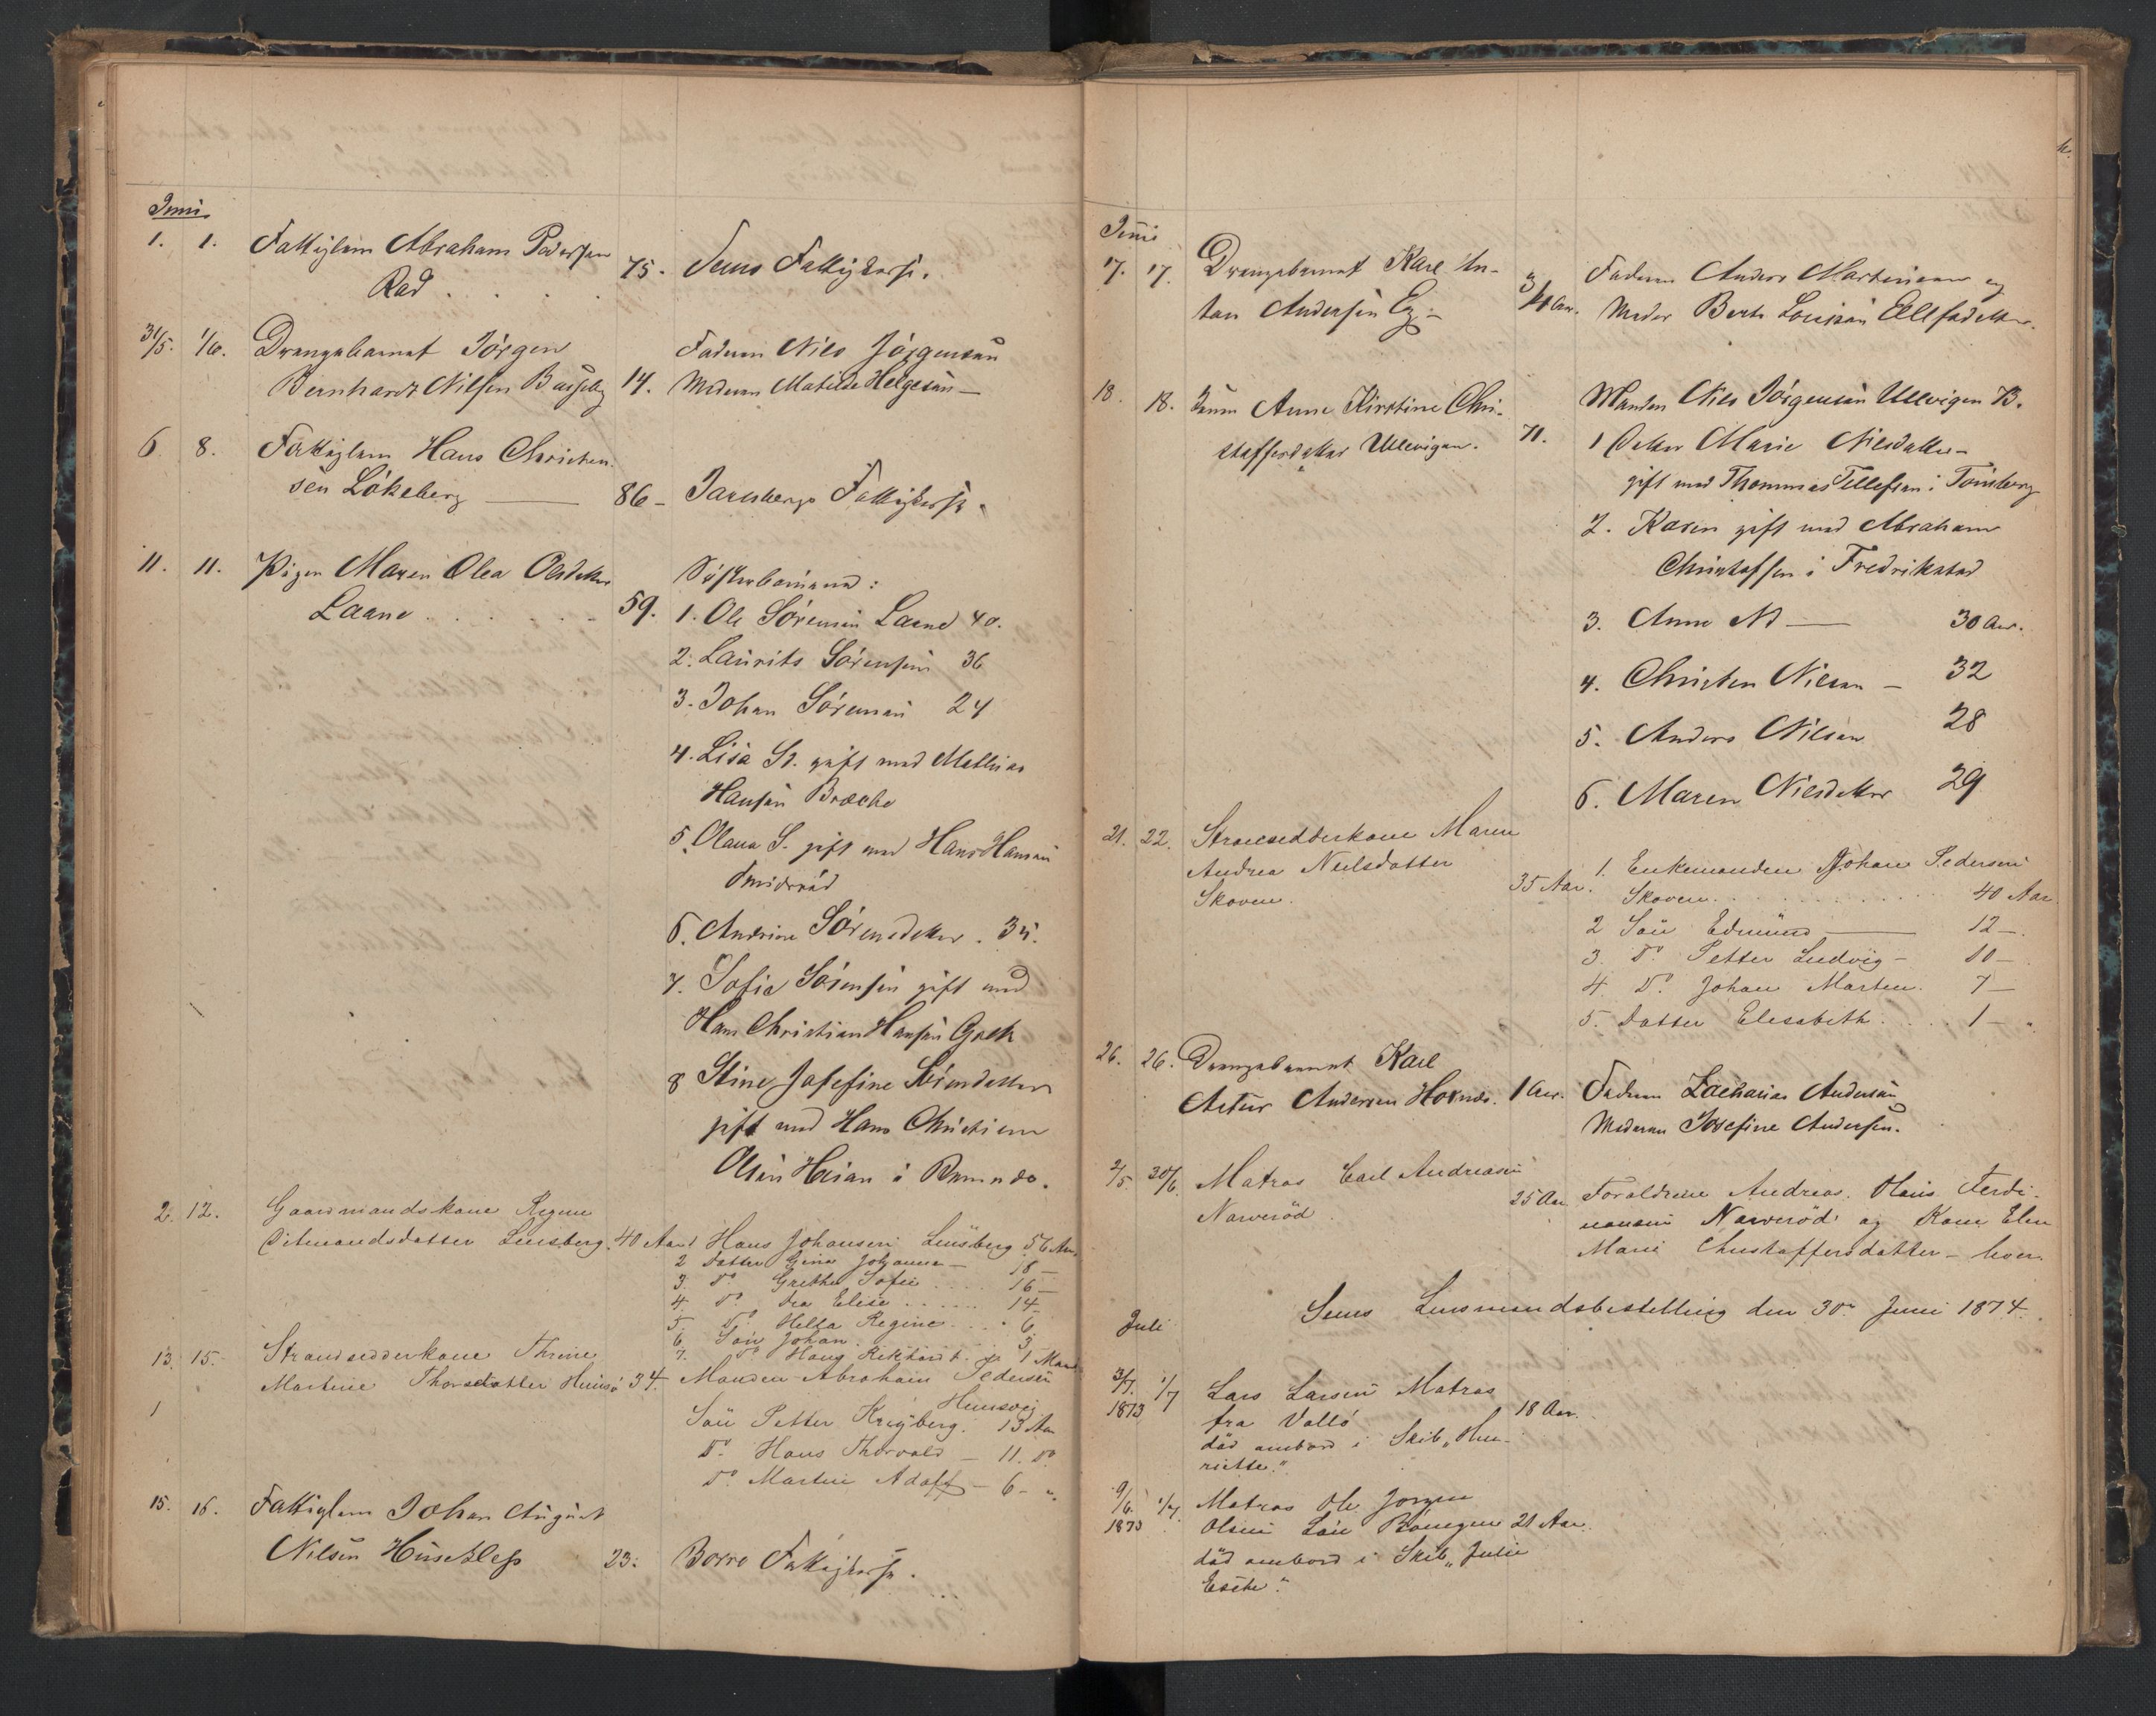 Juni
1. 1. Fattiglem Abraham Pedersen
Rad . . . . 75. Sems Fattigkasse.
31/5. 1/6. Drengebarnet Jörgen Faderen Nils Jörgensen
Bernhardt Nilsen Basseby 14. Moderen Matilde Helgesen —
6 8. Fattiglem Hans Christen-
sen Lökeberg — 86 – Jarlsbergs Fattigkasse.
11. 11. Pigen Maren Olea Olsdatter Søsterbørnene :
Laane . . . . 59. 1. Ole Sörensen Laane 40.
2. Laurits Sörensen 36
3. Johan Sörensen 24
4. Lisa Sd. gift med Mathias
Hansen Bræche
5. Olava S. gift med Hans Hansen
Smidsröd
6. Andrine Sörensdatter . 35.
7. Sofie Sörensen gift med
Hans Christian Hansen Gresk
8 Stine Josefine Sörensdatter
gift med Hans Christian
Olsen Heian i Ramnæs.
2. 12. Gaardmandskone Regine
Ditmandsdatter Linsberg. 40 Aar 1 Hans Johansen Linsberg 56 Aar
2 Datter Gina Johanna — 18 —
3. Do Grethe Sofie . . . . 16 —
4. Do Dea Elise . . . . . 14 –
5. Do Helta Regine . . . . 6
6. Sön Johan . 3
7. Do Hans Rikhardt . 1 Maan
13. 15. Strandsedderkone Thrine
Martine Thorsdatter Husvø 34. Manden Abraham Pedersen
Husøvei
1 Sön Petter Krigberg. 13 Aar
Do Hans Thorvald – 11. Do
Do Martin Adolf – 6 – ".
15. 16. Fattiglem Johan August
Nilsen Huseklep 23. Borre Fattigkasse.
Juni
17. 17. Drengebarnet Karl An- Faderen Anders Martinsen og
ton Andersen Ey – 3/4 Aar. Moder Berte Lovise Ellefsdatter.
18. 18. Konen Anne Kirstine Chri- Manden Nils Jörgensen Ullevigen B.
stoffersdatter Ullevigen. 71. 1 Datter Marie Nilsdatter –
gift med Thommas Tellefsen i Tönsberg
2. Karen gift med Abraham
Christoffersen i Fredrikstad
3. Anne Nd — 30 Aar.
4. Christen Nilsen – 32
5. Anders Nilsen 28
6. Maren Nilsdatter 29
21. 22. Strandsedderkone Maren
Andrea Neilsdatter 1. Enkemanden Johan Pedersen
Skoven. 35 Aar. Skoven . . . . . 40 Aar
2 Sön Edmund — 12 –
3. Do Petter Ludvig – 10 –
4. Do Johan Martin. 7 –
5. Datter Elisabeth . . . 1 – "
26. 26. Drengebarnet Karl
Artur Andersen Hornæs. 1 Aar. Faderen Zacharias Andersen
Moderen Josefine Andersen.
2/5. 30/6. Matros Carl Andreasen
Narveröd . 25 Aar Foraldrene Andreas Olaus Ferdi-
nansen Narveröd og Kone Elen
Marie Christoffersdatter – lever.
Sems Lensmandsbestilling den 30te Juni 1874.
Juli
3/7. 1873 1/7 Lars Larsen Matros
fra Vallö 18 Aar.
död ombord i Skib „Hen-
riette."
9/6. 1873 1/7 Matros Ole Jorgen
Olsen Löie 21 Aar.
död ombord i Skib „Julie